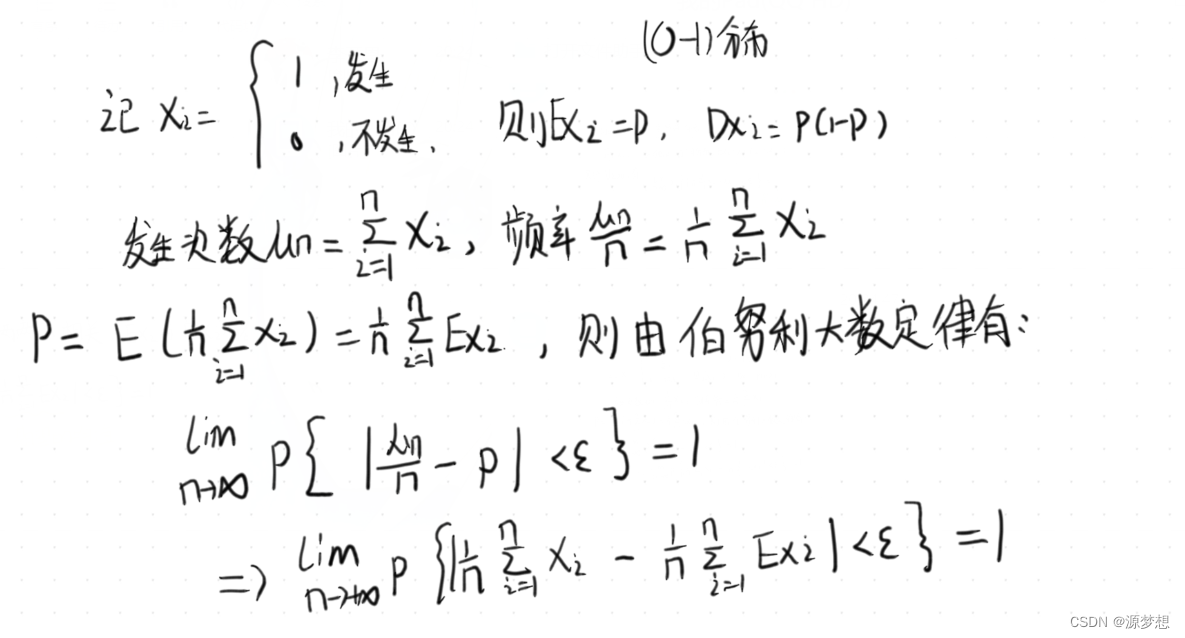 (0-1)分布
记 Xi = { 1 ,发生
0 ,不发生. 则EXi=p, DXi=P(1-P)
发生次数μn = ∑_{i=1}^{n} Xi, 频率 μn/n = 1/n ∑_{i=1}^{n} Xi
P = E(1/n ∑_{i=1}^{n} Xi) = 1/n ∑_{i=1}^{n} EXi , 则由伯努利大数定律有:
lim_{n→∞} P{ |μn/n - p| <ε } = 1
=> lim_{n→+∞} P{ |1/n ∑_{i=1}^{n} Xi - 1/n ∑_{i=1}^{n} EXi| <ε } = 1
CSDN @源梦想